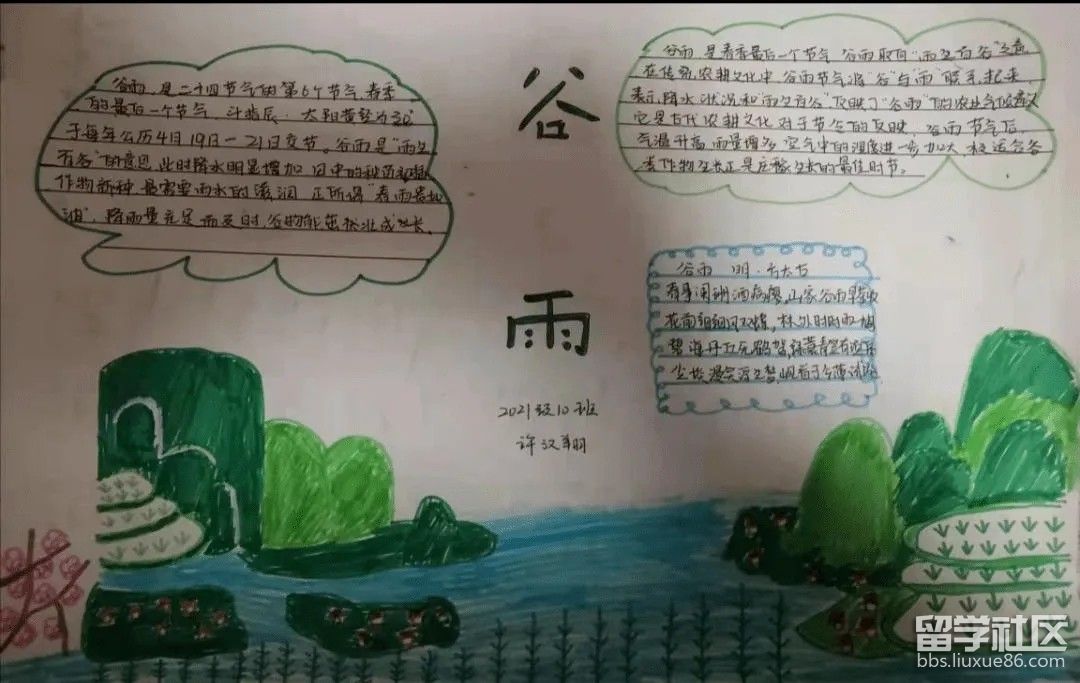 谷雨,是二十四节气的第6个节气,春季
的最后一个节气,斗指辰,太阳黄经为30°
于每年公历4月19日—21日交节。谷雨是"雨生
百谷"的意思,此时降水明显增加,田中的秧苗初插
作物新种,最需要雨水的滋润,正所谓"春雨贵如
油",降雨量充足而及时,谷物能茁壮成长。
谷
雨
2021级10班
许汉翔
谷雨是春季最后一个节气,谷雨取自"雨生百谷"之意
在传统农耕文化中,谷雨节气将"谷"与"雨"联系起来
表示降水状况和"雨生百谷"反映了"谷雨"的农业气候意义
它是古代农耕文化对于节令的反映,谷雨节气后,
气温升高,雨量增多,空气中的湿度进一步加大,极适合谷
类作物生长正是庄稼生长的最佳时节。
谷雨 明·方太古
春事阑珊酒病瘳,山家谷雨早茶收
花前细细风双蝶,林外时时雨一鸠
碧海丹丘无鹤驾,绿蓑青笠有渔舟
尘埃漫笑浮生梦,岘首于今薄试游
留学社区
bbs.liuxue86.com